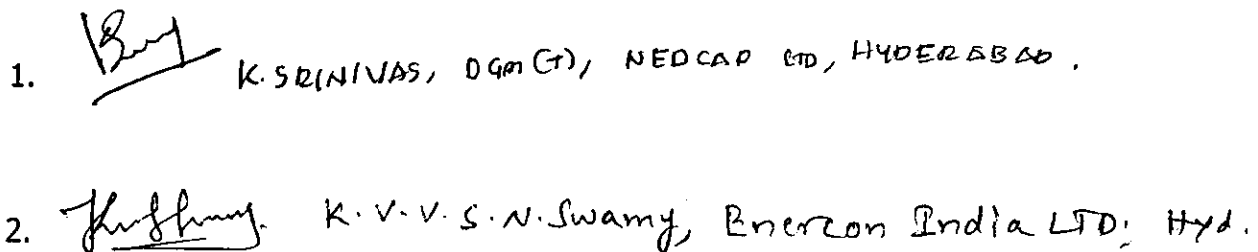 1. K. SRINIVAS, DGM (T), NEDCAP LTD, HYDERABAD.
2. K. V. V. S. N. Swamy, Enercon India LTD; Hyd.